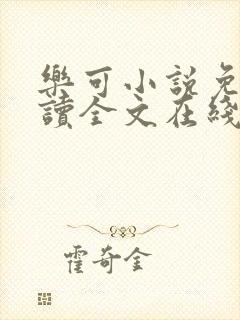 樂可小說免
讀全文在綫
霍奇金